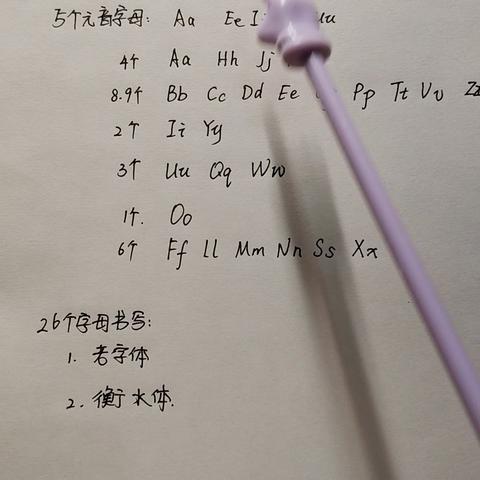 5个元音字母: Aa Ee Ii Uu
4个 Aa Hh Jj
8.9个 Bb Cc Dd Ee Pp Tt Vv Zz
2个 Ii Yy
3个 Uu Qq Ww
1个. Oo
6个 Ff Ll Mm Nn Ss Xx
26个字母书写:
1. 老字体
2. 衡水体.